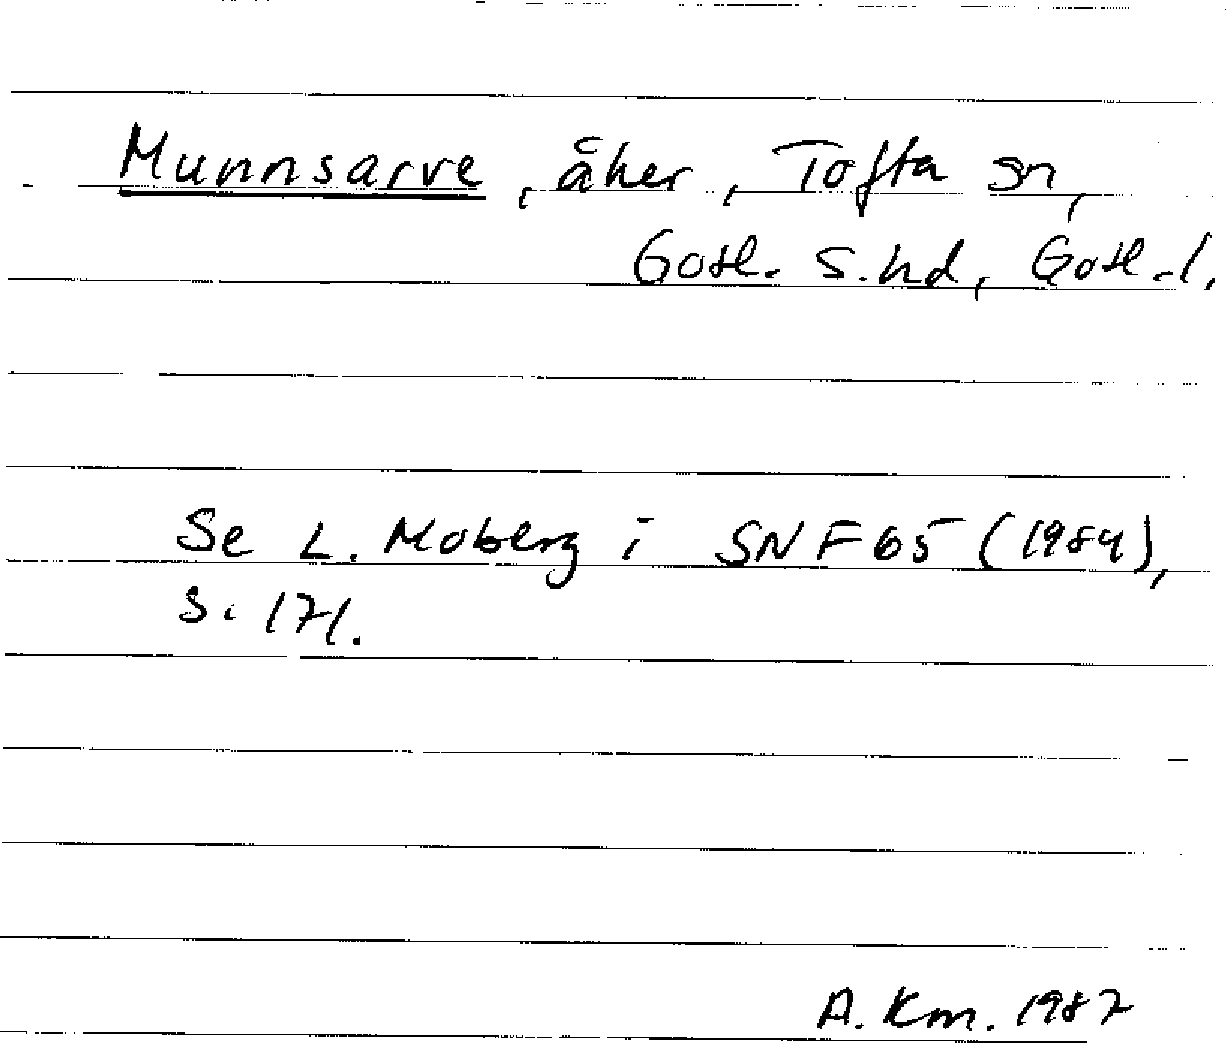 Munnsarve, åker, Tofta sn,
Gotl. s. hd, Gotl. l.
Se L. Moberg i SNF 65 (1984),
s. 171.
A. Km. 1987